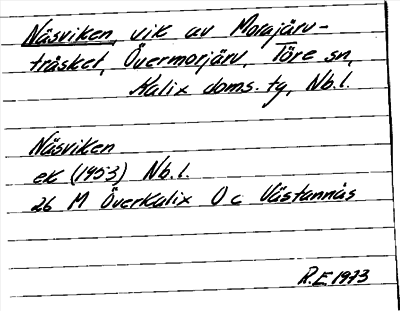 Näsviken, vik av Morajärv-
träsket, Övermorjärv, Töre sn,
Kalix doms. tg, Nb. l.
Näsviken
ek (1953) Nb. l.
26 M Överkalix O c Västannäs
R.E. 1973